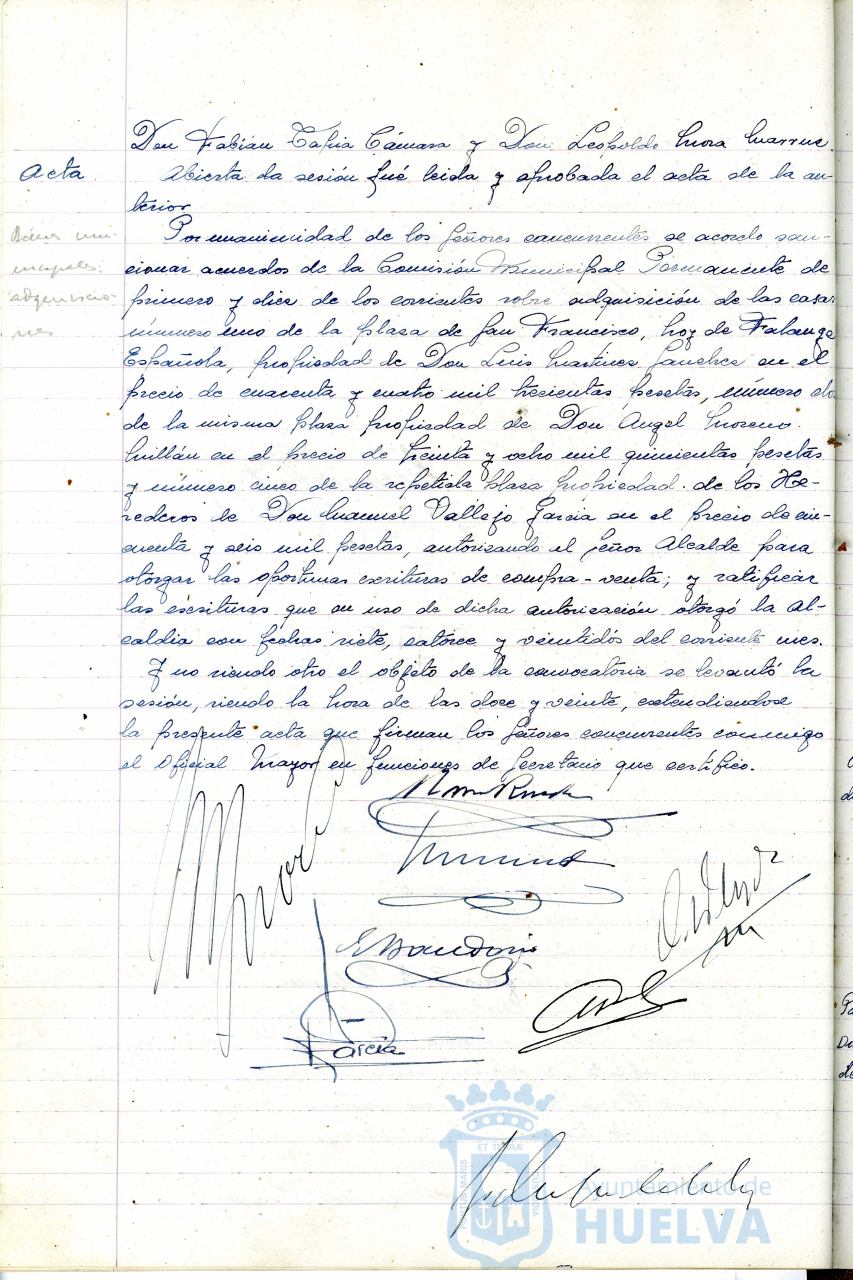 Don Fabián Tapia Cámara y Don Leopoldo Mora Marrue
Acta
Abierta la sesión fué leida y aprobada el acta de la an-
terior
Bienes mu-
nicipales:
adquisicio-
nes
Por unanimidad de los Señores concurrentes se acordo san-
cionar acuerdos de la Comisión Municipal Permanente de
primero y diez de los corrientes sobre adquisición de las casas
número uno de la plaza de San Francisco, hoy de Falange
Española, propiedad de Don Luis Martinez Sanchez en el
precio de cuarenta y cuatro mil trecientas pesetas, número dos
de la misma plaza propiedad de Don Angel Moreno
Millán en el precio de treinta y ocho mil quinientas pesetas
y número cinco de la repetida plaza propiedad de los He-
rederos de Don Manuel Vallejo Garcia en el precio de cin-
cuenta y seis mil pesetas, autorizando el Señor Alcalde para
otorgar las oportunas escrituras de compra-venta; y ratificar
las escrituras que en uso de dicha autorización otorgó la Al-
caldia con fechas siete, catorce y veintidós del corriente mes.
Y no siendo otro el objeto de la convocatoria se levantó la
sesión, siendo la hora de las doce y veinte, extendiendose
la presente acta que firman los Señores concurrentes conmigo
el Oficial Mayor en funciones de Secretario que certifico.
Garcia
PORTUS MARIS
ET TERRÆ
Ayuntamiento de
HUELVA